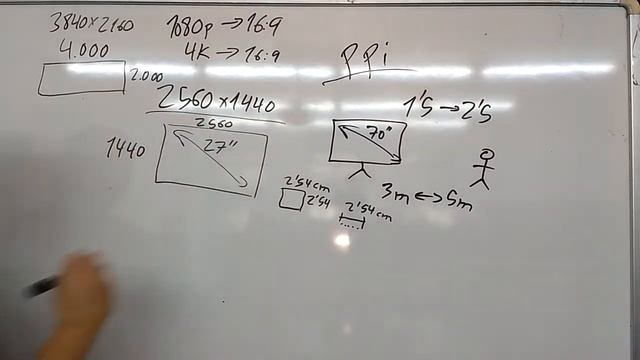 3840×2160
4.000
2.000
1080p → 16:9
4K → 16:9
PPi
2560×1440
2560
1440
27"
1'5 → 2'5
70"
3m ↔ 5m
2'54 cm
2'54
2'54 cm